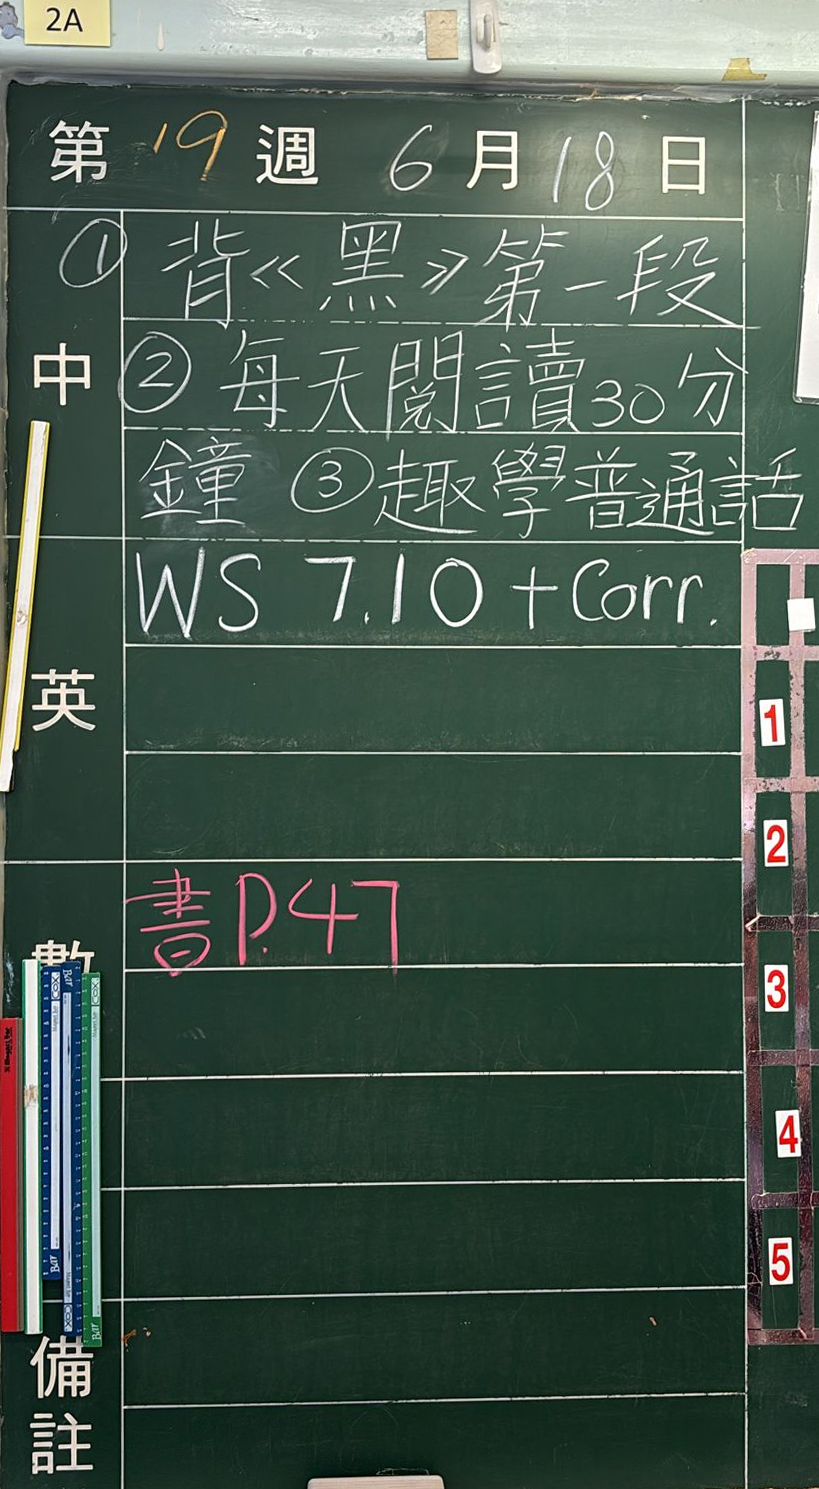 2A
第 19 週 6 月 18 日
中
① 背《黑》第一段
② 每天閱讀30分
鐘 ③趣學普通話
英
WS 7.10 + Corr.
數
書 P.47
備註
1
2
3
4
5